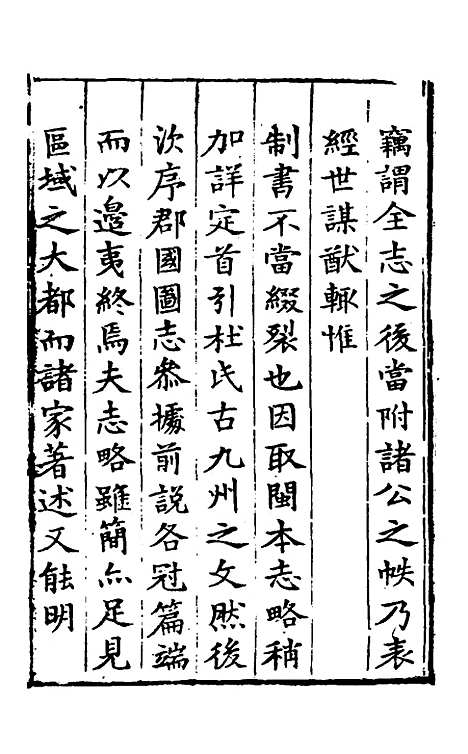 竊謂全志之後當附諸公之帙乃表
經世謀猷輒惟
制書不當綴裂也因取閩本志略稍
加詳定首引杜氏古九州之文然後
次序郡國圖志參據前説各冠篇端
而以邊夷終焉夫志略雖簡亦足見
區域之大都而諸家著述又能明